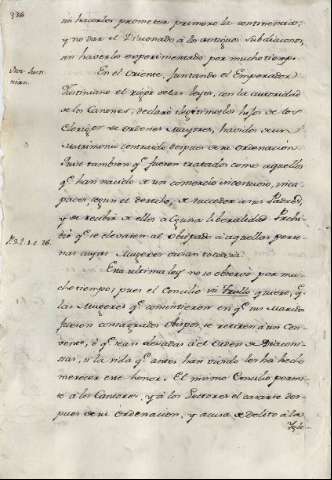 386
sin hacerles prometer primero la continencia,
y no dar el Diaconado à los antiguos Subdiaconos,
sin haverlos experimentado por mucho tiempo.
En el Oriente, juntando el Emperador
Justiniano el rigor de las leyes, con la autoridad
de los Canones, declarò ilegitimos los hijos de los
Clerigos de ordenes Mayores, havidos de un
Matrimonio contraido despues de su ordenacion.
Quiso tambien qe. fuesen tratados como aquellos
qe. han nacido de un comercio incestuoso, inca-
paces segun el derecho, de succeder a sus Padres,
y de recibir de ellos alguna liberalidad. Prohi-
biò qe. se elevasen al Obispado à aquellas perso-
nas cuyas Mugeres vivian todavia.
Esta ultima ley no se observò por mu-
cho tiempo; pues el Concilio in Trullo quiere, qe.
las Mugeres qe. consintieron en qe. sus Maridos
fuesen consagrados Obispos, se retiren à un Con-
vento, ò qe. sean elevadas à el orden de Diaconi-
sas, si la vida qe. antes han tenido les ha hecho
merecer este honor. El mismo Concilio permi-
te à los Cantores, y à los Lectores el casarse des-
pues de su ordenacion, y acusa de delito à la
Ygle-